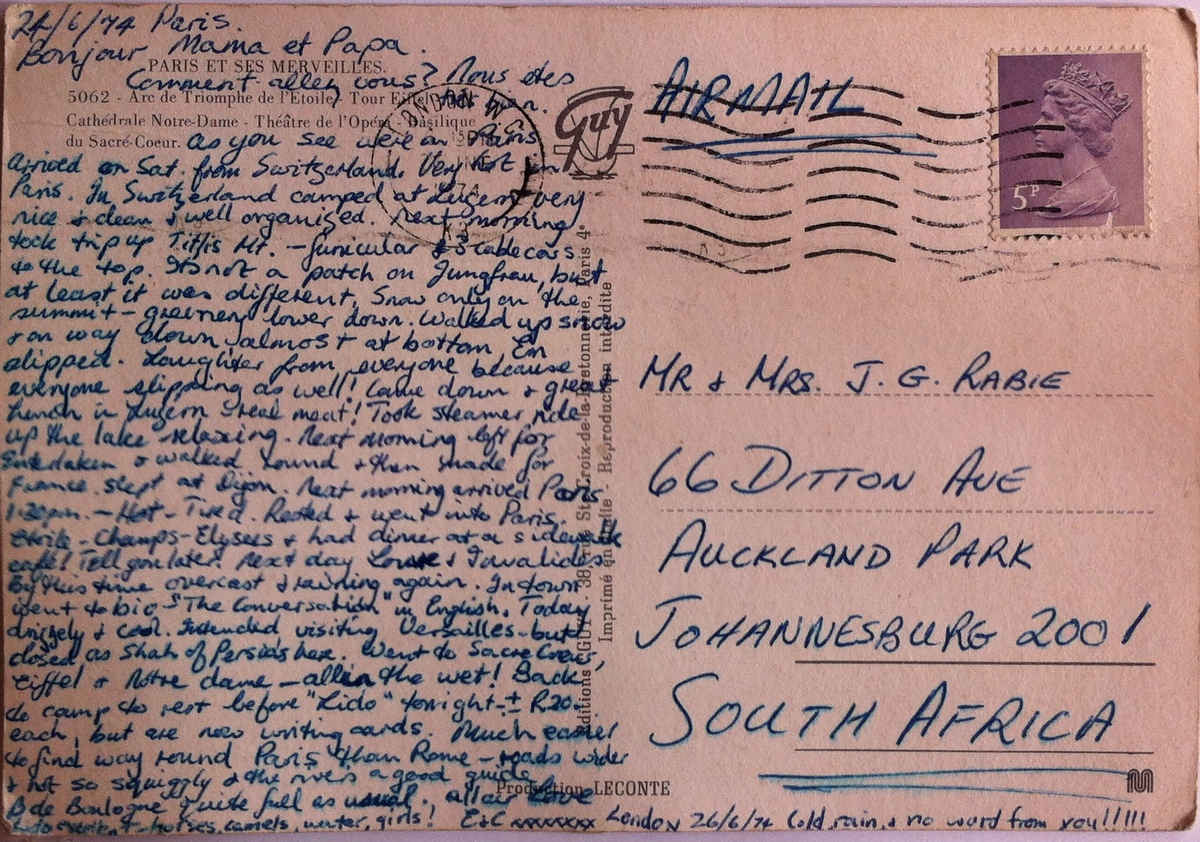 24/6/74 Paris.
Bonjour Mama et Papa.
PARIS ET SES MERVEILLES.
Comment allez vous? Nous etes
5062 - Arc de Triomphe de l'Etoile - Tour Eiffel
Cathédrale Notre-Dame - Théâtre de l'Opéra - Basilique
du Sacré-Coeur.
as you see we're in Paris
arrived on Sat. from Switzerland. Very hot in
Paris. In Switzerland camped at Lugern very
nice & clean & well organised. Next morning
took trip up Titlis Mt. - funicular & 3 cablecars
to the top. It's not a patch on Jungfrau, but
at least it was different. Snow only on the
summit - greenery lower down. Walked up snow
& on way down almost at bottom Em
slipped. Laughter from everyone because
everyone slipping as well! Came down & great
lunch in Lugern - real meat! Took steamer ride
up the lake - relaxing. Next morning left for
Interlaken & walked round & then made for
France. slept at Dijon. Next morning arrived Paris
1.30pm. - Hot - Tired. Rested & went into Paris.
Etoile - Champs-Elysees & had dinner at a sidewalk
café! Tell you later. Next day Louvre & Invalides
By this time overcast & raining again. In town
went to bio "The Conversation" in English. Today
drizzly & cool. Intended visiting Versailles - but
closed as Shah of Persia's here. Went to Sacre Coeur,
Eiffel & Notre dame - all in the wet! Back
to camp to rest before "Lido" tonight - ± R20.
each, but are now writing cards. Much easier
to find way round Paris than Rome - roads wider
& not so squiggly & the river's a good guide
B de Boulogne quite full as usual. all air love
horses, camels, water, girls! E&C xxxxxxxx London 26/6/74 Cold, rain, & no word from you!!!!!
Guy
Editions "GUY" - 38, rue Ste-Croix-de-la-Bretonnerie, Paris 4e
Imprimé en - Reproduction interdite
Production LECONTE
AIRMAIL
5P
MR & MRS. J. G. RABIE
66 DITTON AVE
AUCKLAND PARK
JOHANNESBURG 2001
SOUTH AFRICA